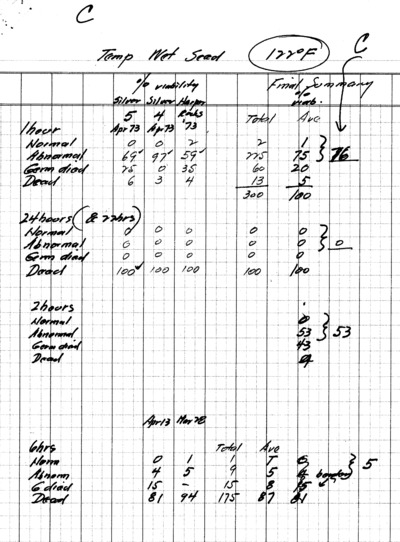 C
Temp Wet Seed 122°F
C
% viability Final Summary
Silver Silver Harper %
viab.
5 4 Rocks Total Ave
1 hour Apr 73 Apr 73 '73
Normal 0 0 2 2 1
Abnormal 69 97 59 225 75 } 76
Germ died 25 0 35 60 20
Dead 6 3 4 13 5
300 100
24 hours (& 22hrs)
Normal 0 0 0 0 0
Abnormal 0 0 0 0 0 } 0
Germ died 0 0 0 0 0
Dead 100 100 100 100 100
2 hours
Normal 0
Abnormal 53 } 53
Germ died 43
Dead 4
Apr 13 Mar 28
6 hrs Total Ave
Norm 0 1 1 T
Abnorm 4 5 9 5 } 5
G died 15 - 15 8
Dead 81 94 175 87 81